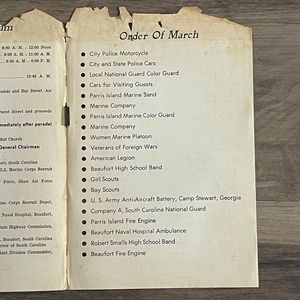 am
8:00 A. M. - 12:00 Noon
8:00 A. M. - 6:00 P. M.
10:45 A. M.
ounds and Bay Street. Air
Carteret Street and proceeds
mmediately after parade)
tist Church
General Chairman
ufort, South Carolina
Marine Corps Recruit
Force, Shaw Air Force
rine Corps Recruit Depot,
Naval Hospital, Beaufort,
tate Highway Commission,
, Beaufort, South Carolina
ernor of South Carolina
st Division Commander,
Order Of March
City Police Motorcycle
City and State Police Cars
Local National Guard Color Guard
Cars for Visiting Guests
Parris Island Marine Band
Marine Company
Parris Island Marine Color Guard
Marine Company
Women Marine Platoon
Veterans of Foreign Wars
American Legion
Beaufort High School Band
Girl Scouts
Boy Scouts
U. S. Army Anti-Aircraft Battery, Camp Stewart, Georgia
Company A, South Carolina National Guard
Parris Island Fire Engine
Beaufort Naval Hospital Ambulance
Robert Smalls High School Band
Beaufort Fire Engine